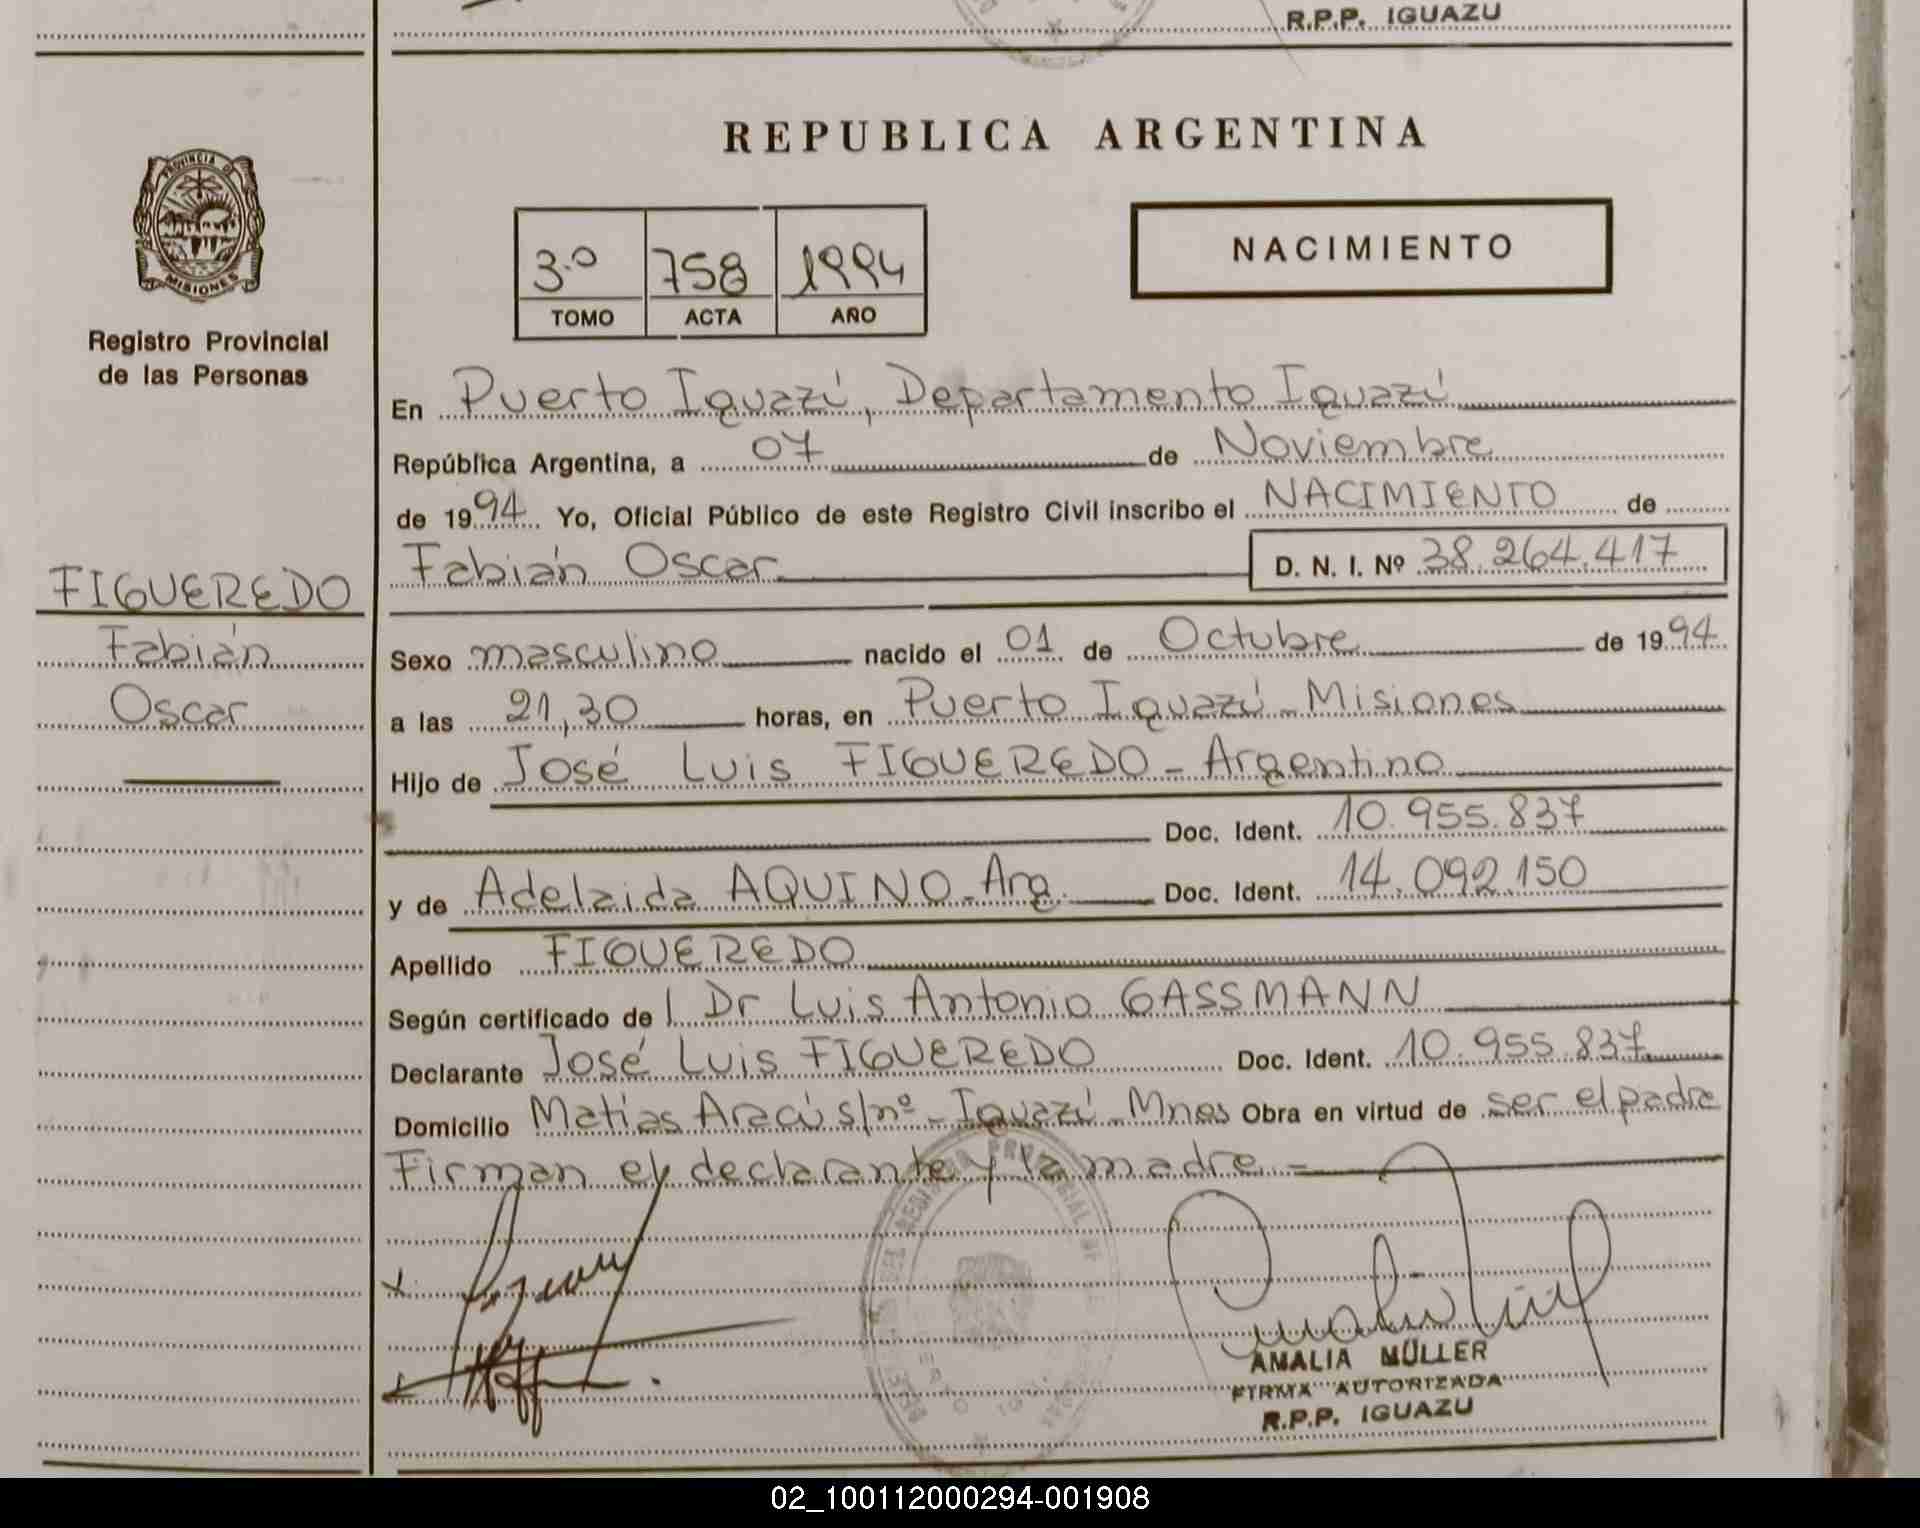 R.P.P. IGUAZU
REPUBLICA ARGENTINA
PROVINCIA DE
MISIONES
Registro Provincial
de las Personas
3.º 758 1994
TOMO ACTA AÑO
NACIMIENTO
En Puerto Iguazú, Departamento Iguazú
República Argentina, a 07 de Noviembre
de 1994 Yo, Oficial Público de este Registro Civil inscribo el NACIMIENTO de
Fabián Oscar D. N. I. Nº 38.264.417
FIGUEREDO
Fabián
Oscar
Sexo masculino nacido el 01 de Octubre de 1994
a las 21,30 horas, en Puerto Iguazú - Misiones
Hijo de José Luis FIGUEREDO - Argentino
Doc. Ident. 10.955.837
y de Adelaida AQUINO - Arg. Doc. Ident. 14.092.150
Apellido FIGUEREDO
Según certificado de Dr Luis Antonio GASSMANN
Declarante José Luis FIGUEREDO Doc. Ident. 10.955.837
Domicilio Matías Aracú s/nº - Iguazú - Mnes Obra en virtud de ser el padre
Firman el declarante y la madre. =
REGISTRO PROVINCIAL DE
AMALIA MÜLLER
FIRMA AUTORIZADA
R.P.P. IGUAZU
02_100112000294-001908